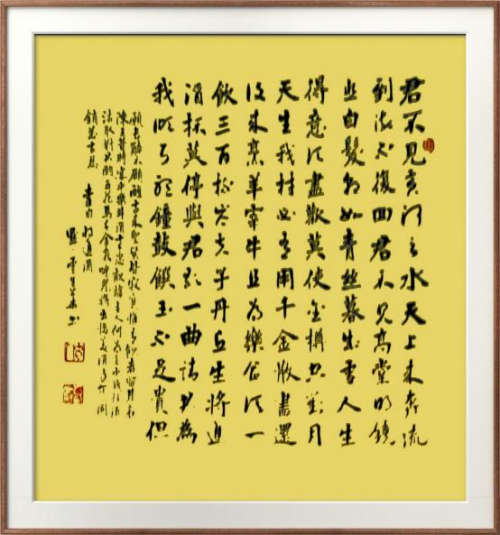 君不見黃河之水天上來奔流
到海不復回君不見高堂明鏡
悲白髮朝如青絲暮成雪人生
得意須盡歡莫使金樽空對月
天生我材必有用千金散盡還
復來烹羊宰牛且為樂會須一
飲三百杯岑夫子丹丘生將進
酒杯莫停與君歌一曲請君為
我傾耳聽鐘鼓饌玉不足貴但
願長醉不願醒古來聖賢皆寂寞惟有飲者留其名
陳王昔時宴平樂斗酒十千恣歡謔主人何為言少錢徑須
沽取對君酌五花馬千金裘呼兒將出換美酒與爾同
銷萬古愁
李白將進酒